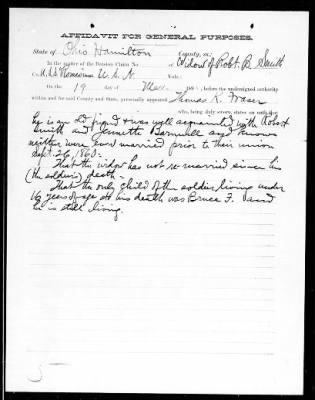 AFFIDAVIT FOR GENERAL PURPOSES.
State of Ohio Hamilton County, ss:
In the matter of the Pension Claim No. Widow of Robt. B Smith
U.S.N
On the 19 day of Mar. before the undersigned authority
within and for said County and State, personally appeared Thomas K.
who, being duly sworn, states on oath that
he is an old friend & was well acquainted with Robert
Smith and Jennette and knows
neither were ever married prior to their union
Sept. 26, 1860.
That the widow has not re married since his
(the soldier's) death.
That the only child of the soldier living under
16 years of age at his death was Bruce F. and
he is still living.